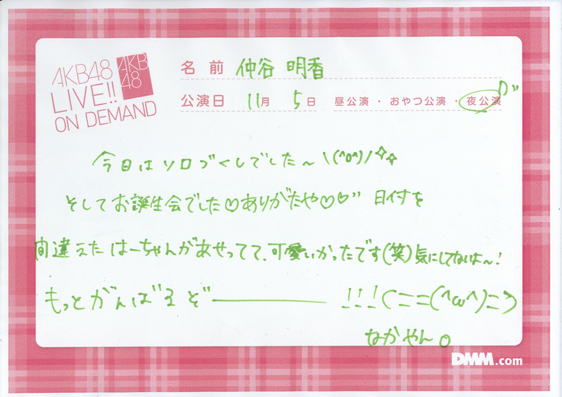 AKB48
LIVE!!
ON DEMAND
AKB
48
名前 仲谷 明香
公演日 11月 5日 昼公演・おやつ公演・夜公演
今日はソロづくしでした〜\(^o^)/☆☆
そしてお誕生会でした♡ありがたや♡♡" 日付を
間違えたはーちゃんがあせってて、可愛いかったです(笑)気にしてないよ〜!
もっとがんばるぞ―――― !!!(二二(^ω^)二⊃
なかやん。
DMM.com